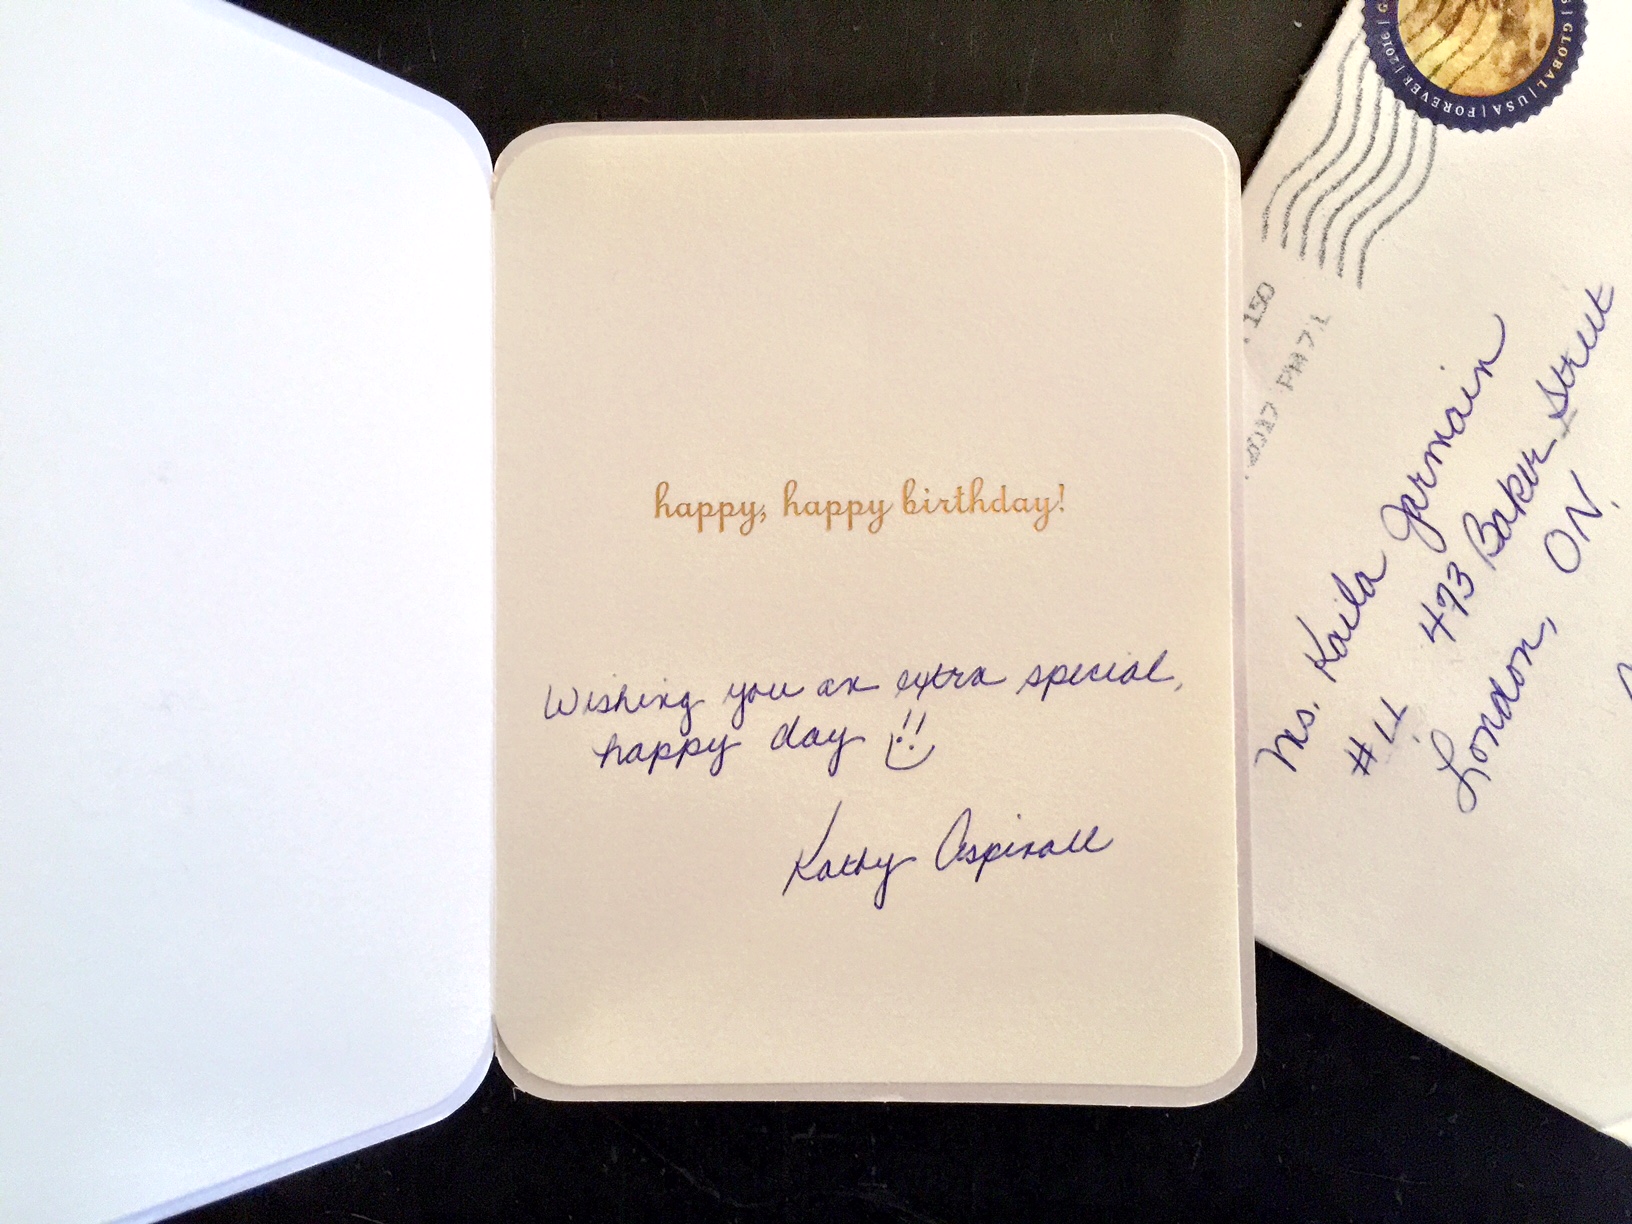 happy, happy birthday!
Wishing you an extra special,
happy day !!
Kathy Aspinall
GLOBAL | USA | FOREVER | 2016 |
150
2017 PM 7 L
Ms. Kaila Jarmain
#11 473 Baker Street
London, ON.